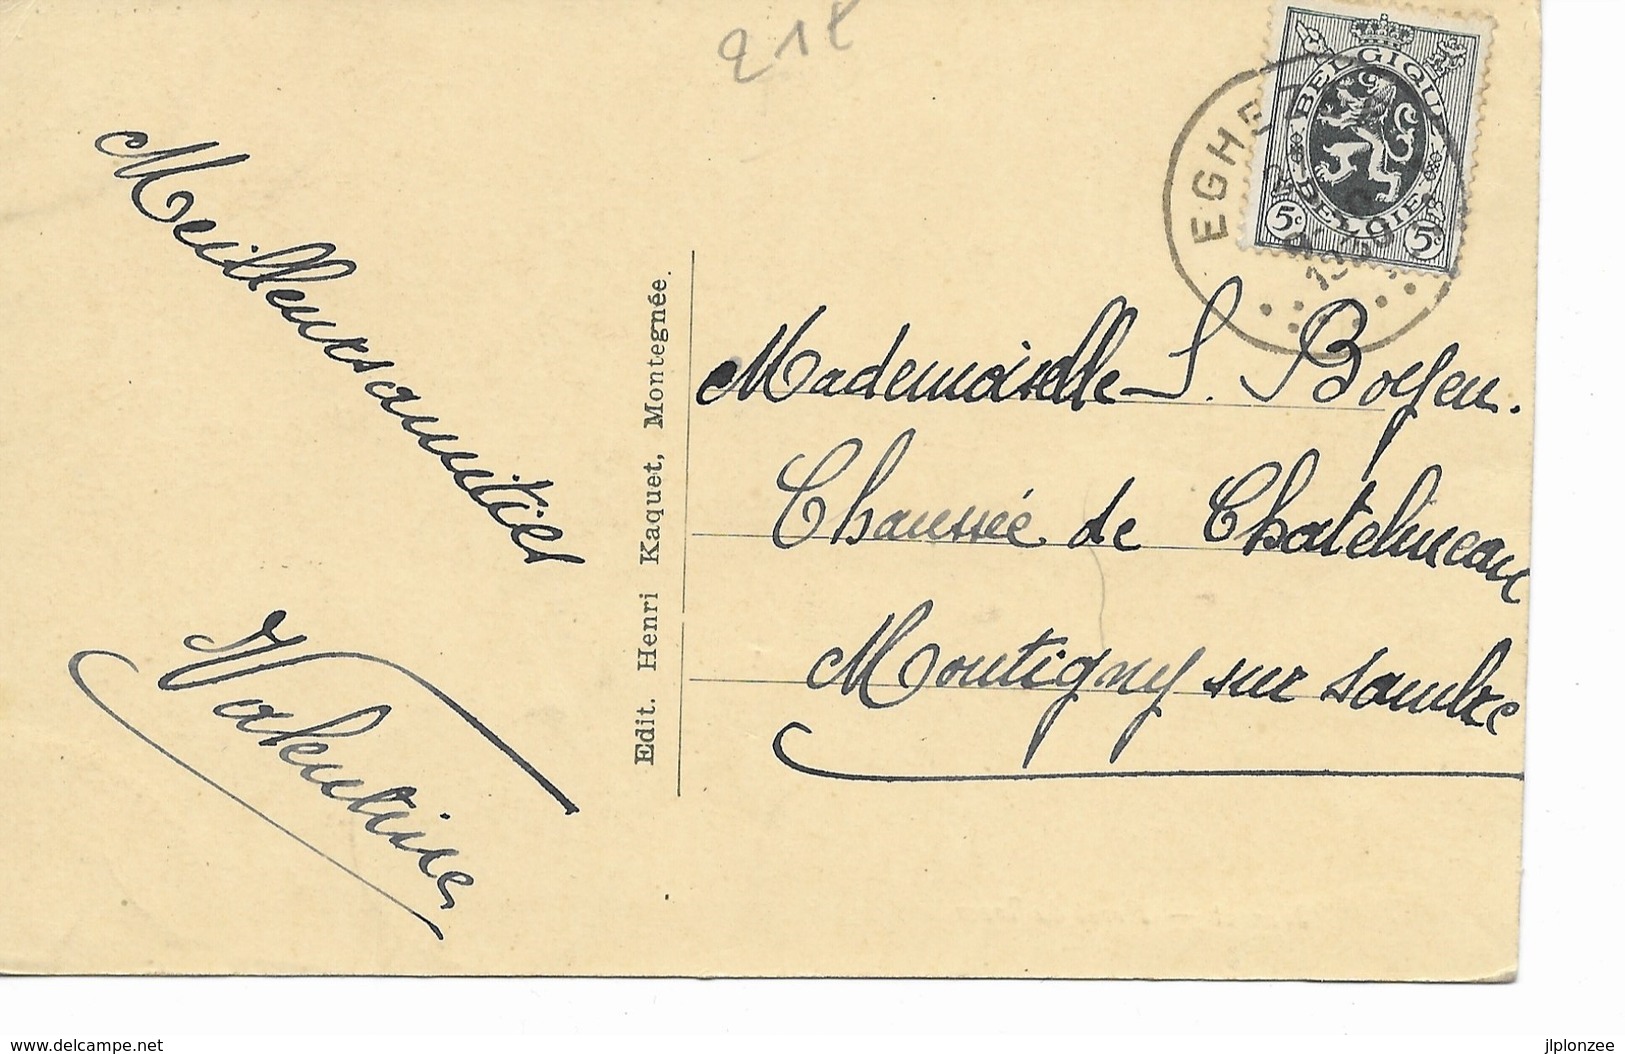 21
BELGIQUE
BELGIE
5c 5c
EGHE
Meilleurs amitiés
Valentine
Edit. Henri Kaquet, Montegnée.
Mademoiselle S. Boyen.
Chaussée de Chatelineau
Montigny sur Sambre
www.delcampe.net
jlplonzee